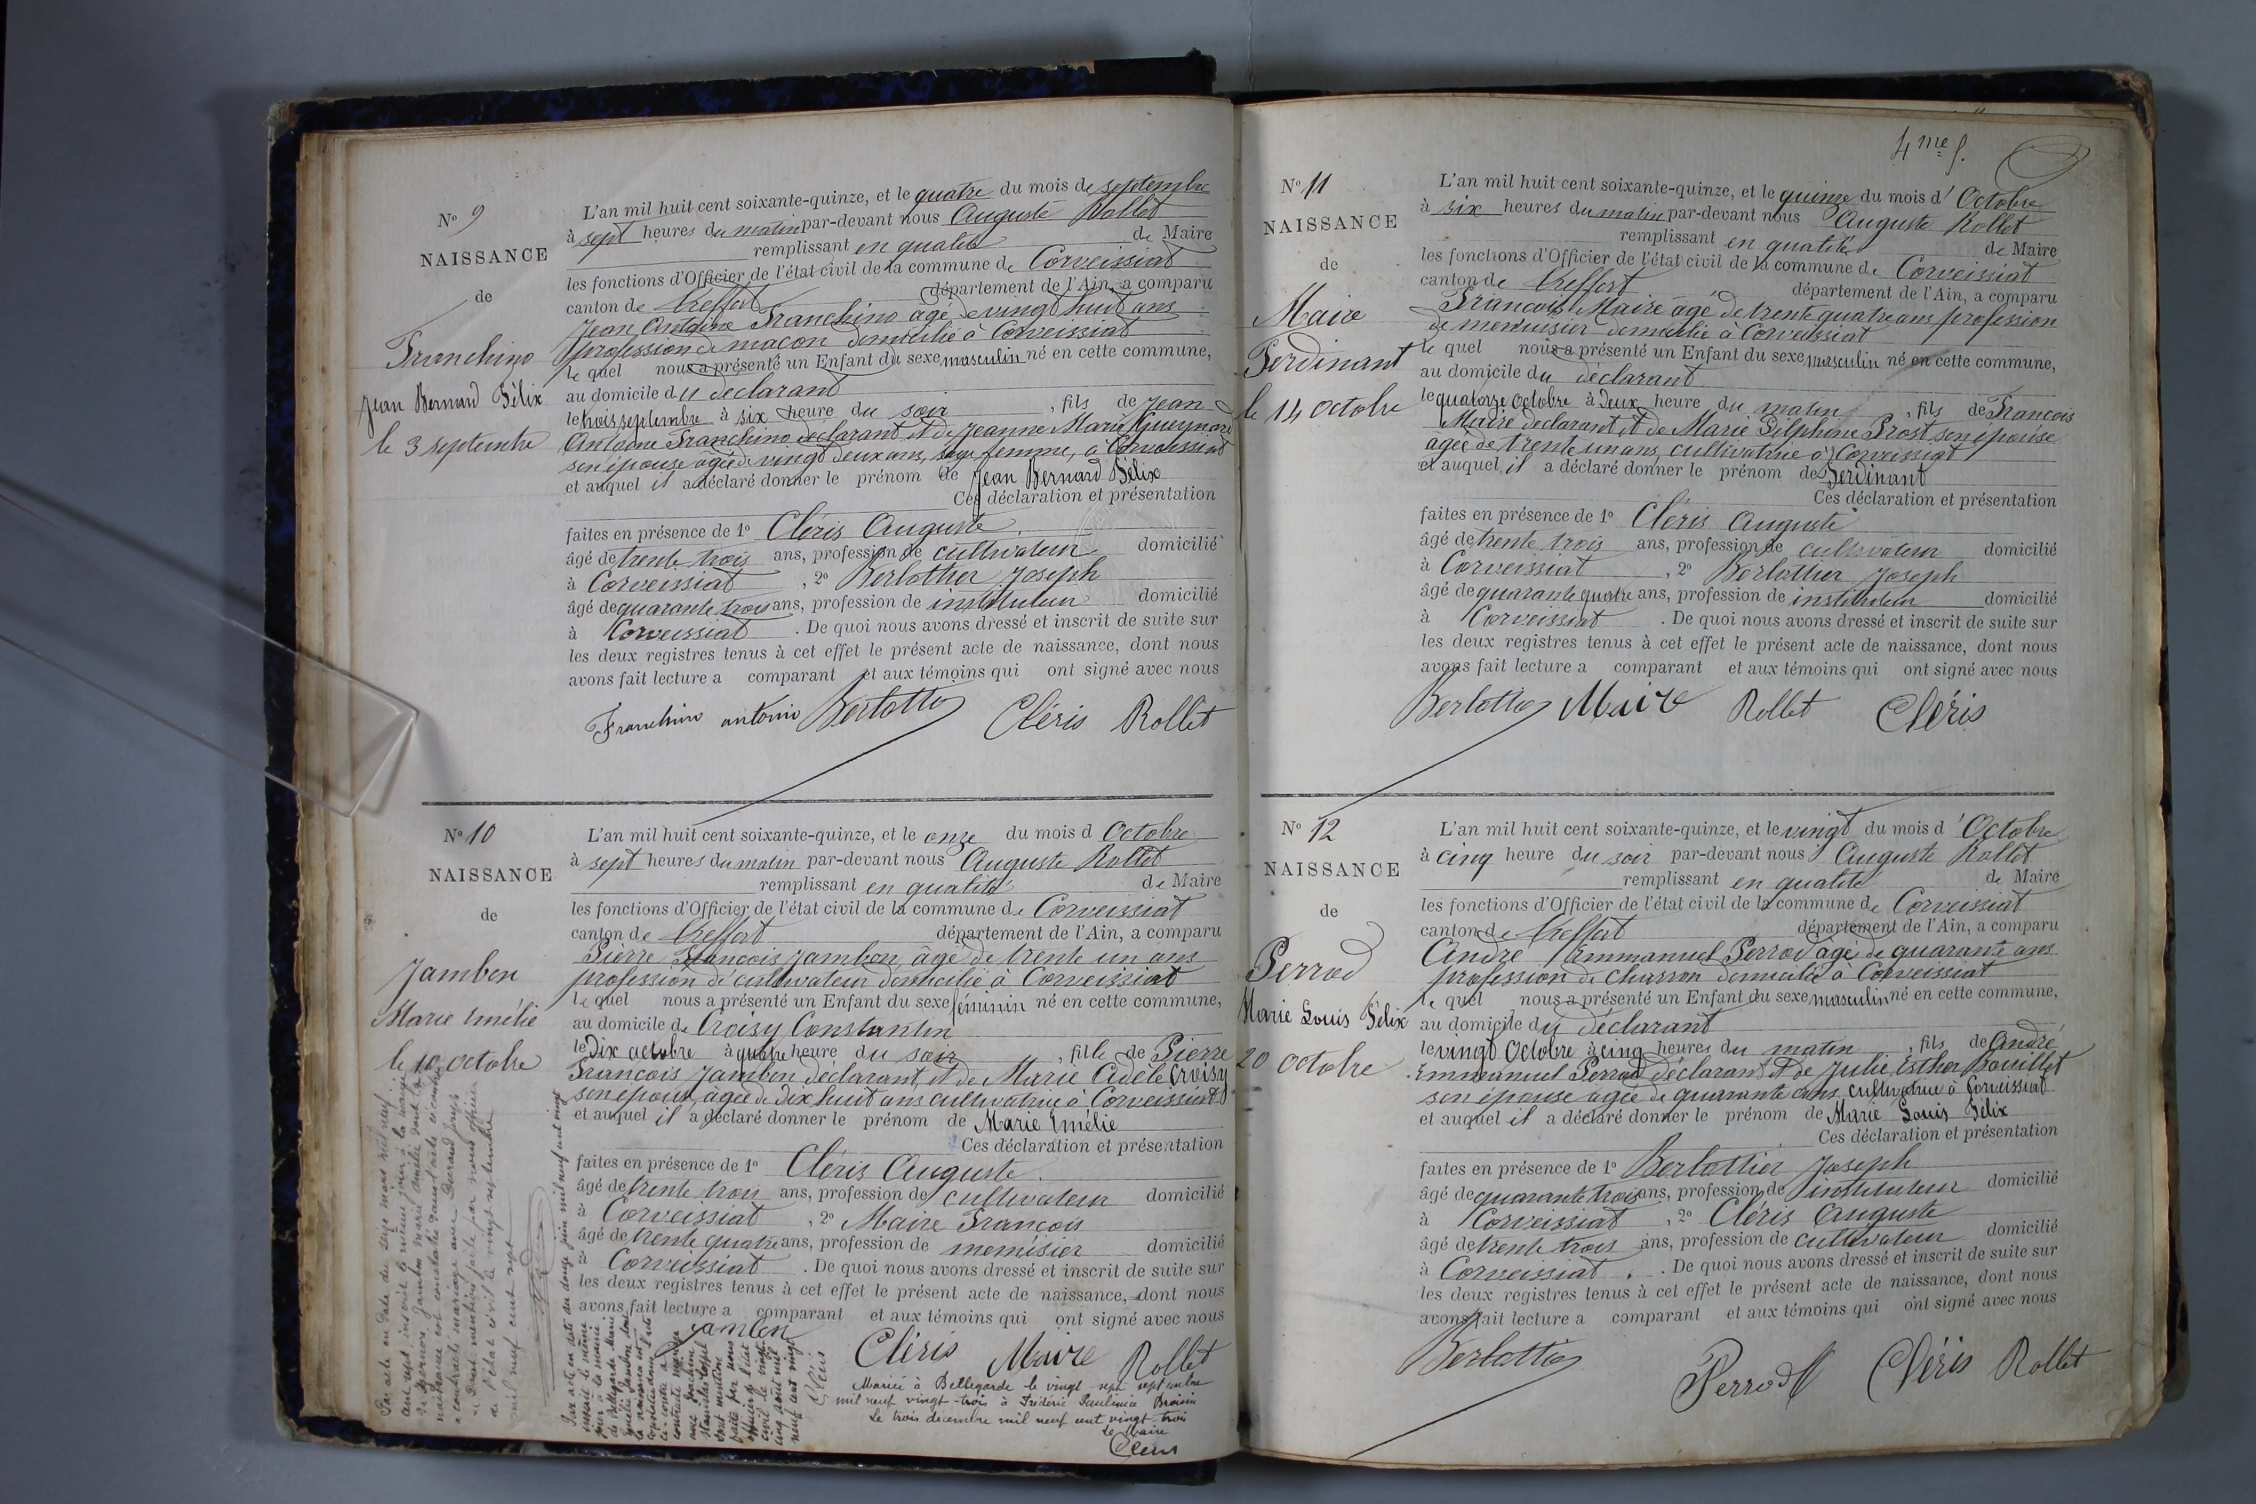 Nº 9
NAISSANCE
de
Franchino
Jean Bernard Félix
le 3 septembre
L'an mil huit cent soixante-quinze, et le quatre du mois de septembre
à sept heures du matin par-devant nous Auguste Rollet
remplissant en qualité de Maire
les fonctions d'Officier de l'état civil de la commune de Corveissiat
canton de Treffort département de l'Ain, a comparu
Jean Antoine Franchino âgé de vingt huit ans
profession de maçon domicilié à Corveissiat
le quel nous a présenté un Enfant du sexe masculin né en cette commune,
au domicile du déclarant
le trois septembre à six heure du soir, fils de Jean
Antoine Franchino déclarant et de Jeanne Marie
son épouse âgée de vingt deux ans, sage femme, à Corveissiat
et auquel il a déclaré donner le prénom de Jean Bernard Félix
Ces déclaration et présentation
faites en présence de 1º Cléris Auguste
âgé de trente trois ans, profession de cultivateur domicilié
à Corveissiat, 2º Berlottier Joseph
âgé de quarante trois ans, profession de instituteur domicilié
à Corveissiat. De quoi nous avons dressé et inscrit de suite sur
les deux registres tenus à cet effet le présent acte de naissance, dont nous
avons fait lecture a comparant et aux témoins qui ont signé avec nous
Franchino antonio Cléris Rollet
Nº 10
NAISSANCE
de
Jambon
Marie Emélie
le 10 octobre
L'an mil huit cent soixante-quinze, et le onze du mois d Octobre
à sept heures du matin par-devant nous Auguste Rollet
remplissant en qualité de Maire
les fonctions d'Officier de l'état civil de la commune de Corveissiat
canton de Treffort département de l'Ain, a comparu
Pierre François Jambon âgé de trente un ans
profession de cultivateur domicilié à Corveissiat
le quel nous a présenté un Enfant du sexe féminin né en cette commune,
au domicile de Croisy Constantin
le Dix octobre à quatre heure du soir, fille de Pierre
François Jambon déclarant, et de Marie Adèle Croisy
son épouse, âgée de Dix huit ans cultivatrice à Corveissiat
et auquel il a déclaré donner le prénom de Marie Emélie
Ces déclaration et présentation
faites en présence de 1º Cléris Auguste
âgé de trente trois ans, profession de cultivateur domicilié
à Corveissiat, 2º Maire François
âgé de trente quatre ans, profession de domicilié
à Corveissiat. De quoi nous avons dressé et inscrit de suite sur
les deux registres tenus à cet effet le présent acte de naissance, dont nous
avons fait lecture a comparant et aux témoins qui ont signé avec nous
Jambon
Cléris Maire Rollet
Mariée à Bellegarde le vingt sept septembre
mil neuf vingt-trois à Frédéric
Le trois décembre mil neuf cent vingt-trois
Le Maire
4me f.
Nº 11
NAISSANCE
de
Maire
Ferdinant
le 14 octobre
L'an mil huit cent soixante-quinze, et le quinze du mois d'Octobre
à six heures du matin par-devant nous Auguste Rollet
remplissant en qualité de Maire
les fonctions d'Officier de l'état civil de la commune de Corveissiat
canton de Treffort département de l'Ain, a comparu
François Maire âgé de trente quatre ans profession
de menuisier domicilié à Corveissiat
le quel nous a présenté un Enfant du sexe masculin né en cette commune,
au domicile du déclarant
le quatorze octobre à Deux heure du matin, fils de François
Maire déclarant et de Marie Delphine Prost son épouse
âgée de trente un ans, cultivatrice à Corveissiat
et auquel il a déclaré donner le prénom de Ferdinant
Ces déclaration et présentation
faites en présence de 1º Cléris Auguste
âgé de trente trois ans, profession de cultivateur domicilié
à Corveissiat, 2º Berlottier Joseph
âgé de quarante quatre ans, profession de instituteur domicilié
à Corveissiat. De quoi nous avons dressé et inscrit de suite sur
les deux registres tenus à cet effet le présent acte de naissance, dont nous
avons fait lecture a comparant et aux témoins qui ont signé avec nous
Maire Rollet Cléris
Nº 12
NAISSANCE
de
Perrod
Marie Louis Félix
20 octobre
L'an mil huit cent soixante-quinze, et le vingt du mois d'Octobre
à cinq heure du soir par-devant nous Auguste Rollet
remplissant en qualité de Maire
les fonctions d'Officier de l'état civil de la commune de Corveissiat
canton de Treffort département de l'Ain, a comparu
André Emmanuel Perrod âgé de quarante ans
profession de charron domicilié à Corveissiat
le quel nous a présenté un Enfant du sexe masculin né en cette commune,
au domicile du déclarant
le vingt Octobre à cinq heures du matin, fils de André
Emmanuel Perrod déclarant et de Julie Esther Bouillet
son épouse âgée de quarante ans, cultivatrice à Corveissiat
et auquel il a déclaré donner le prénom de Marie Louis Félix
Ces déclaration et présentation
faites en présence de 1º Berlottier Joseph
âgé de quarante trois ans, profession de instituteur domicilié
à Corveissiat, 2º Cléris Auguste
âgé de trente trois ans, profession de cultivateur domicilié
à Corveissiat. De quoi nous avons dressé et inscrit de suite sur
les deux registres tenus à cet effet le présent acte de naissance, dont nous
avons fait lecture a comparant et aux témoins qui ont signé avec nous
Perrod Cléris Rollet